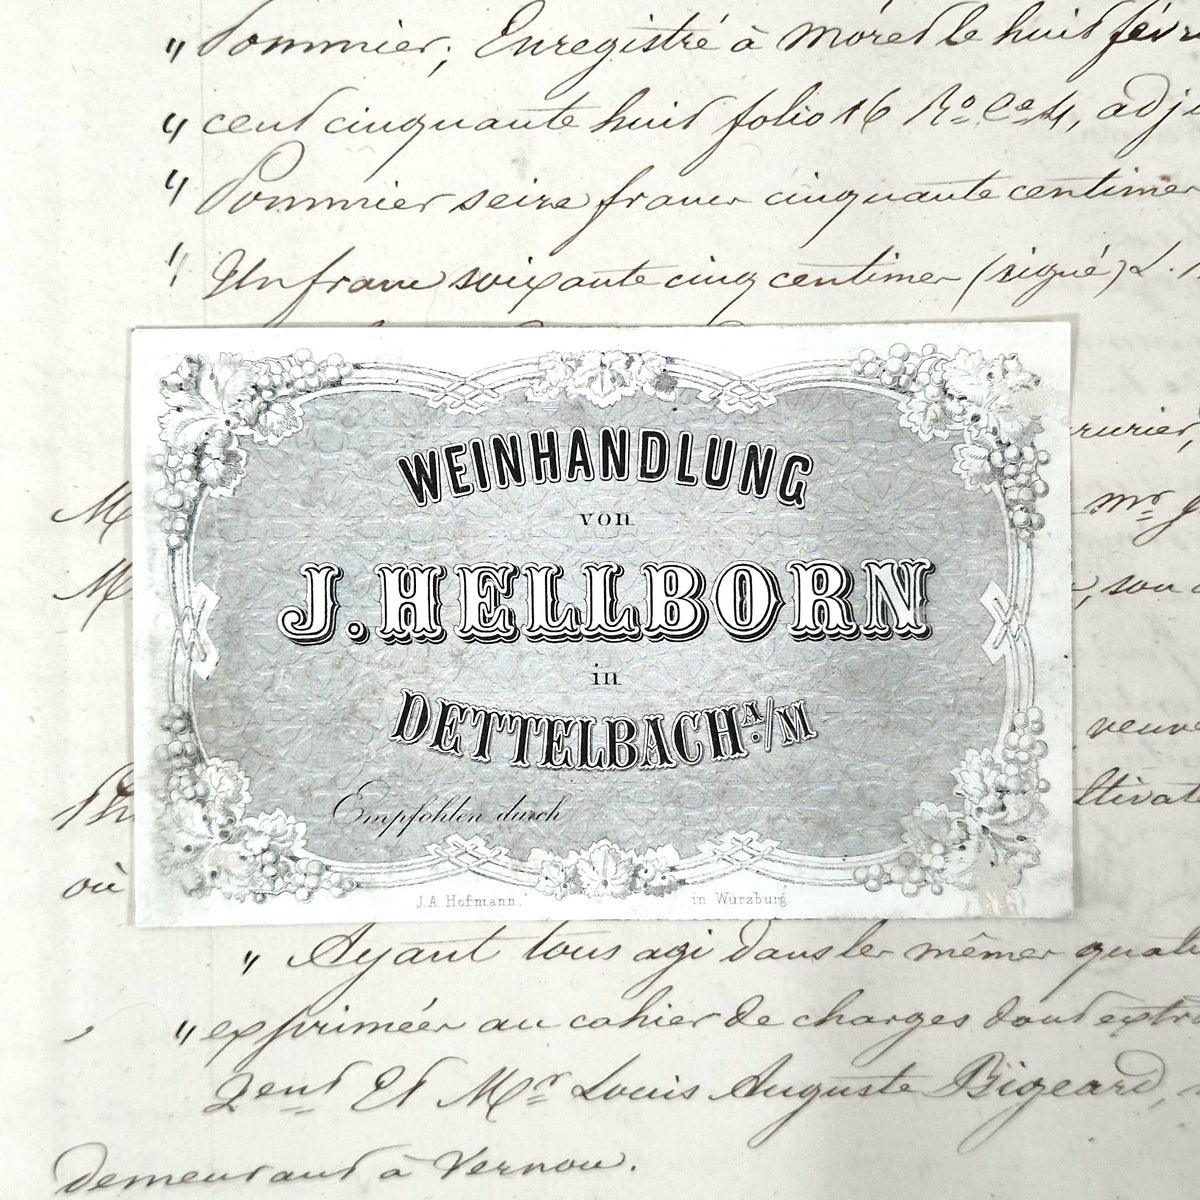 " Sommier; Enregistré à Moret le huit févr
" cent cinquante huit folio 16 Ro Ce 4, adj
" Sommier seize francs cinquante centimes
" Un franc soixante cinq centimes (signé) L.
WEINHANDLUNG
von
J. HELLBORN
in
DETTELBACH A./M
Empfohlen durch
J. A. Hofmann. in Würzburg
mr
, son
veuve
où
" Ayant tous agi dans les mêmes quali
" exprimées au cahier de charges dont extr
2ent Et Mr Louis Auguste Bigeard,
demeurant à Vernou.